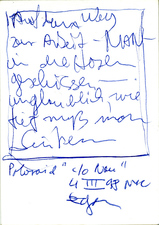 Auf dem Weg
zur Arbeit – MANN
in die Hosen
geschissen –
unglaublich, wie
tief muß man
sinken
Polaroid "c/o Nau"
4 III 98 NYC